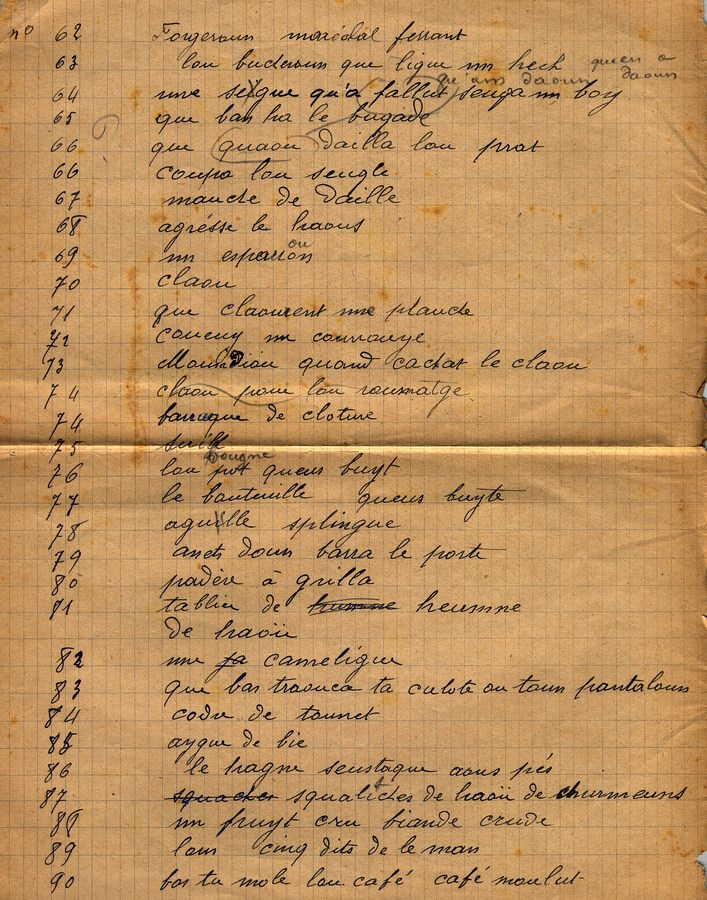 no 62 Forgeroun maréchal ferrant
63 lou buderoun que ligue un hech
qu'am daoun daoun
64 une segue qu'a fallut senga un boy
65 que bas ha le bugade
66 que quaou dailla lou prat
66 coupa lou sengle
67 manche de Daille
68 agrésse le haous
69 un esparroun
70 claou
71 que claourent une planche
72 une
73 quand cachat le claou
74 claou pour lou roumatge
74 barraque de cloture
75
76 lou pot queus buyt
77 le bouteuille queus buyte
78 aguille splingue
79 anets doun barra le porte
80 padère à grilla
81 tablier de heumne
de haoü
82 une cameligue
83 que bas traouca ta culote ou toun pantaloun
84 code de tounet
85 aygue de bie
86 le hagne seustaque aous pés
87 squalitches de haoü de
88 un fruyt cru biande crude
89 lous cinq dits de le man
90 bos tu mole lou café café moulut